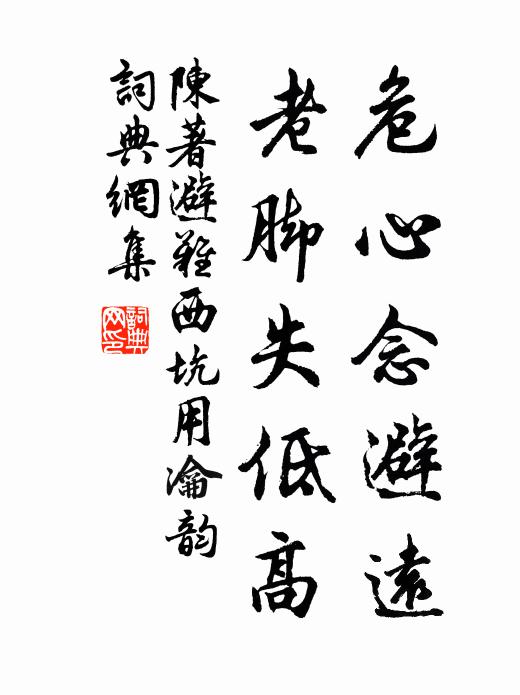 危心念避遠
老脚失低高
陳著避難西坑用瀹韵
詞典網集
詞典网印